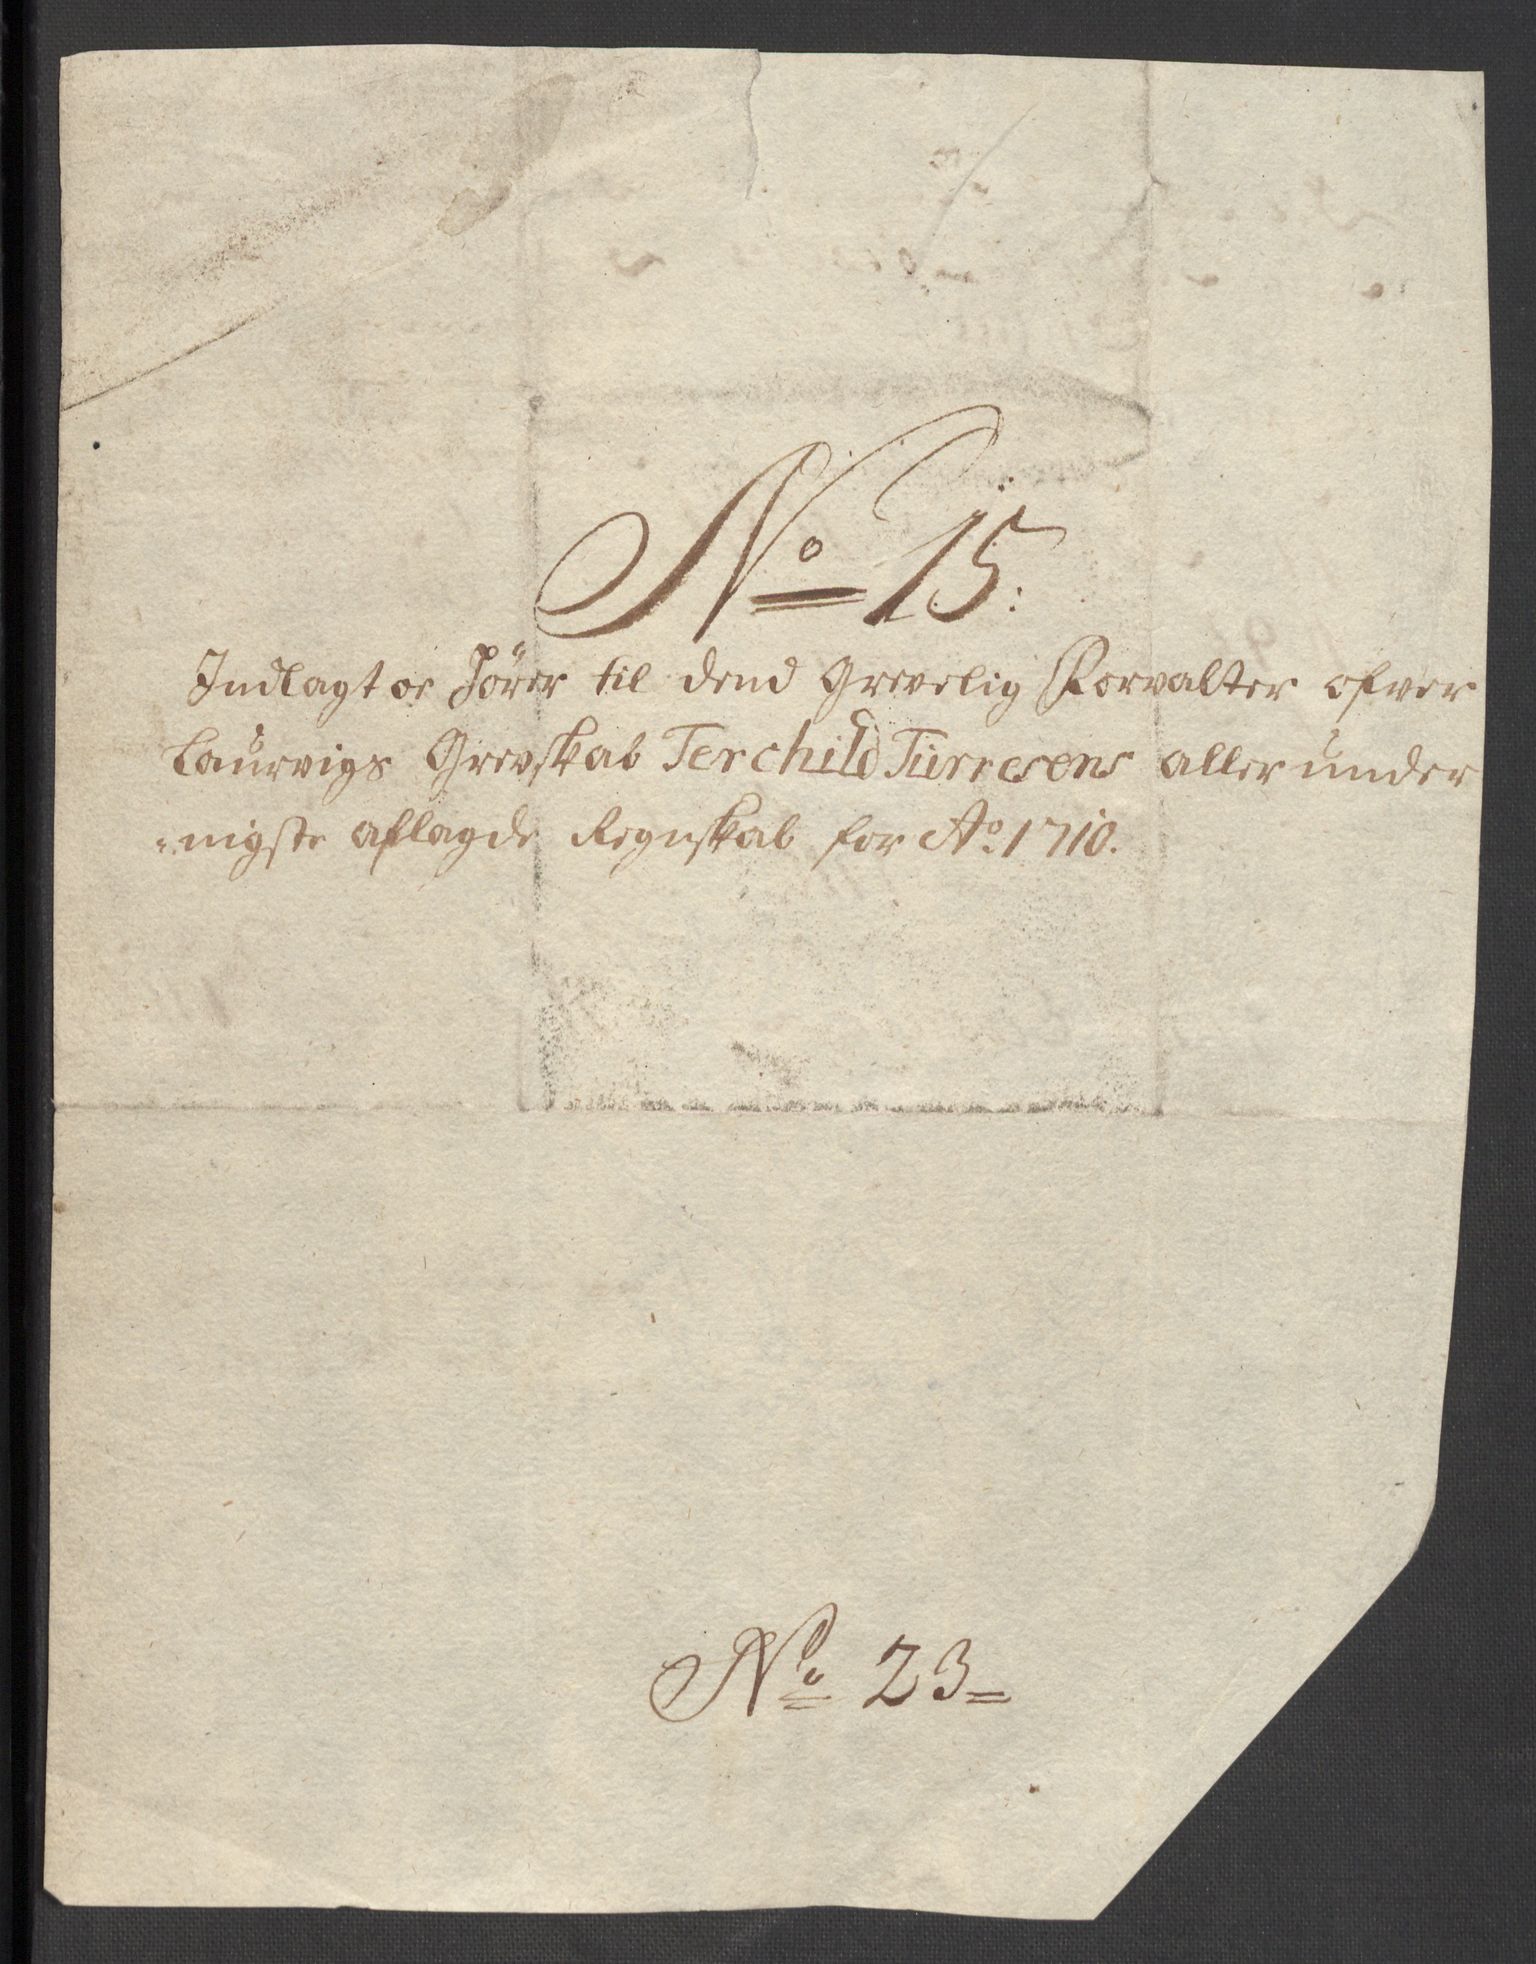 No 15:
Indlagt og hörer til dend Grevelig Forvalter ofver
Laurvigs Grevskab Terchild Türresens aller under
=nigste aflagde Regnskab for Ao. 1710.
No 23=